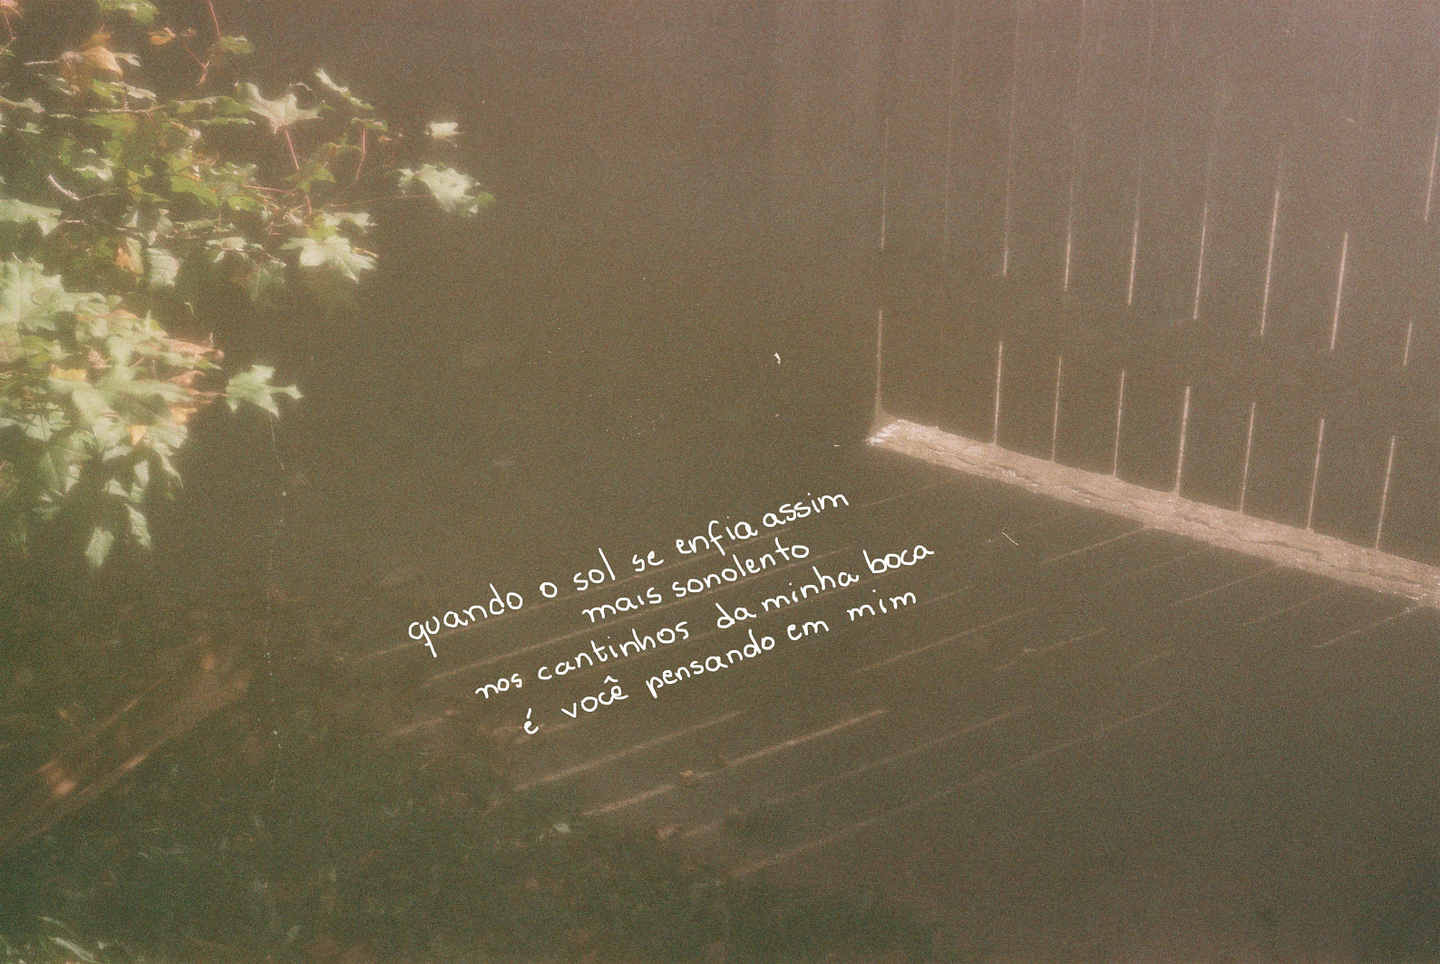 quando o sol se enfia assim
mais sonolento
nos cantinhos da minha boca
é você pensando em mim